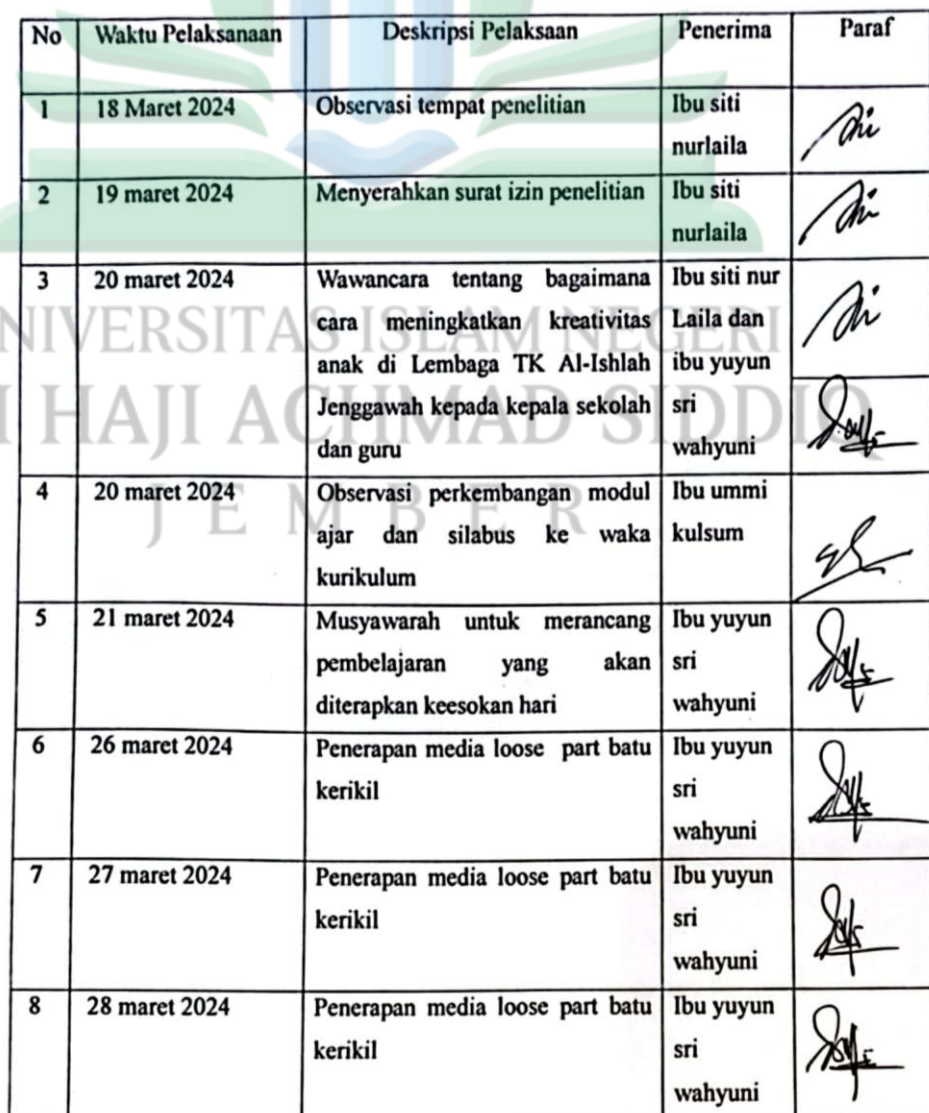 No Waktu Pelaksanaan Deskripsi Pelaksaan Penerima Paraf
1 18 Maret 2024 Observasi tempat penelitian Ibu siti
nurlaila
2 19 maret 2024 Menyerahkan surat izin penelitian Ibu siti
nurlaila
3 20 maret 2024 Wawancara tentang bagaimana Ibu siti nur
cara meningkatkan kreativitas Laila dan
anak di Lembaga TK Al-Ishlah ibu yuyun
Jenggawah kepada kepala sekolah sri
dan guru wahyuni
4 20 maret 2024 Observasi perkembangan modul Ibu ummi
ajar dan silabus ke waka kulsum
kurikulum
5 21 maret 2024 Musyawarah untuk merancang Ibu yuyun
pembelajaran yang akan sri
diterapkan keesokan hari wahyuni
6 26 maret 2024 Penerapan media loose part batu Ibu yuyun
kerikil sri
wahyuni
7 27 maret 2024 Penerapan media loose part batu Ibu yuyun
kerikil sri
wahyuni
8 28 maret 2024 Penerapan media loose part batu Ibu yuyun
kerikil sri
wahyuni
NIVERSITAS ISLAM NEGERI
I HAJI ACHMAD SIDDIQ
JEMBER